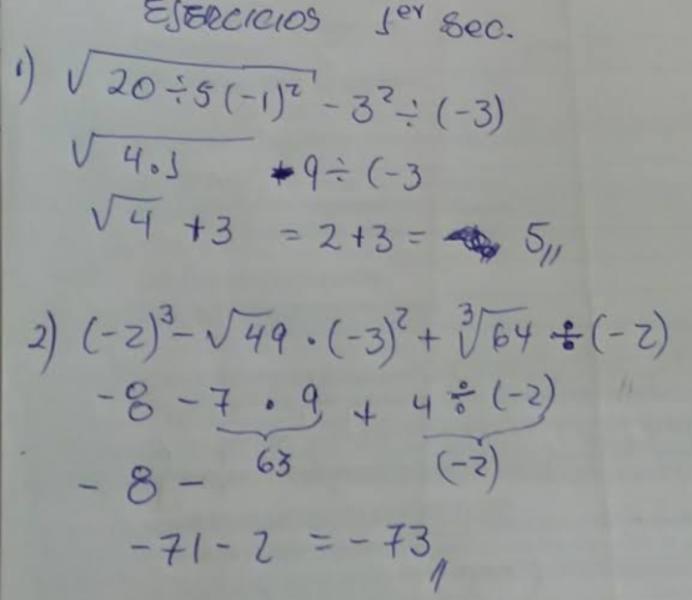 EJERCICIOS 1er Sec.
1) √20÷5(-1)² - 3² ÷ (-3)
√4.1 - 9 ÷ (-3
√4 + 3 = 2+3 = 5,,
2) (-2)³ - √49 . (-3)² + ³√64 ÷ (-2)
-8 - 7 . 9 + 4 ÷ (-2)
63 (-2)
- 8 -
-71 - 2 = -73,,